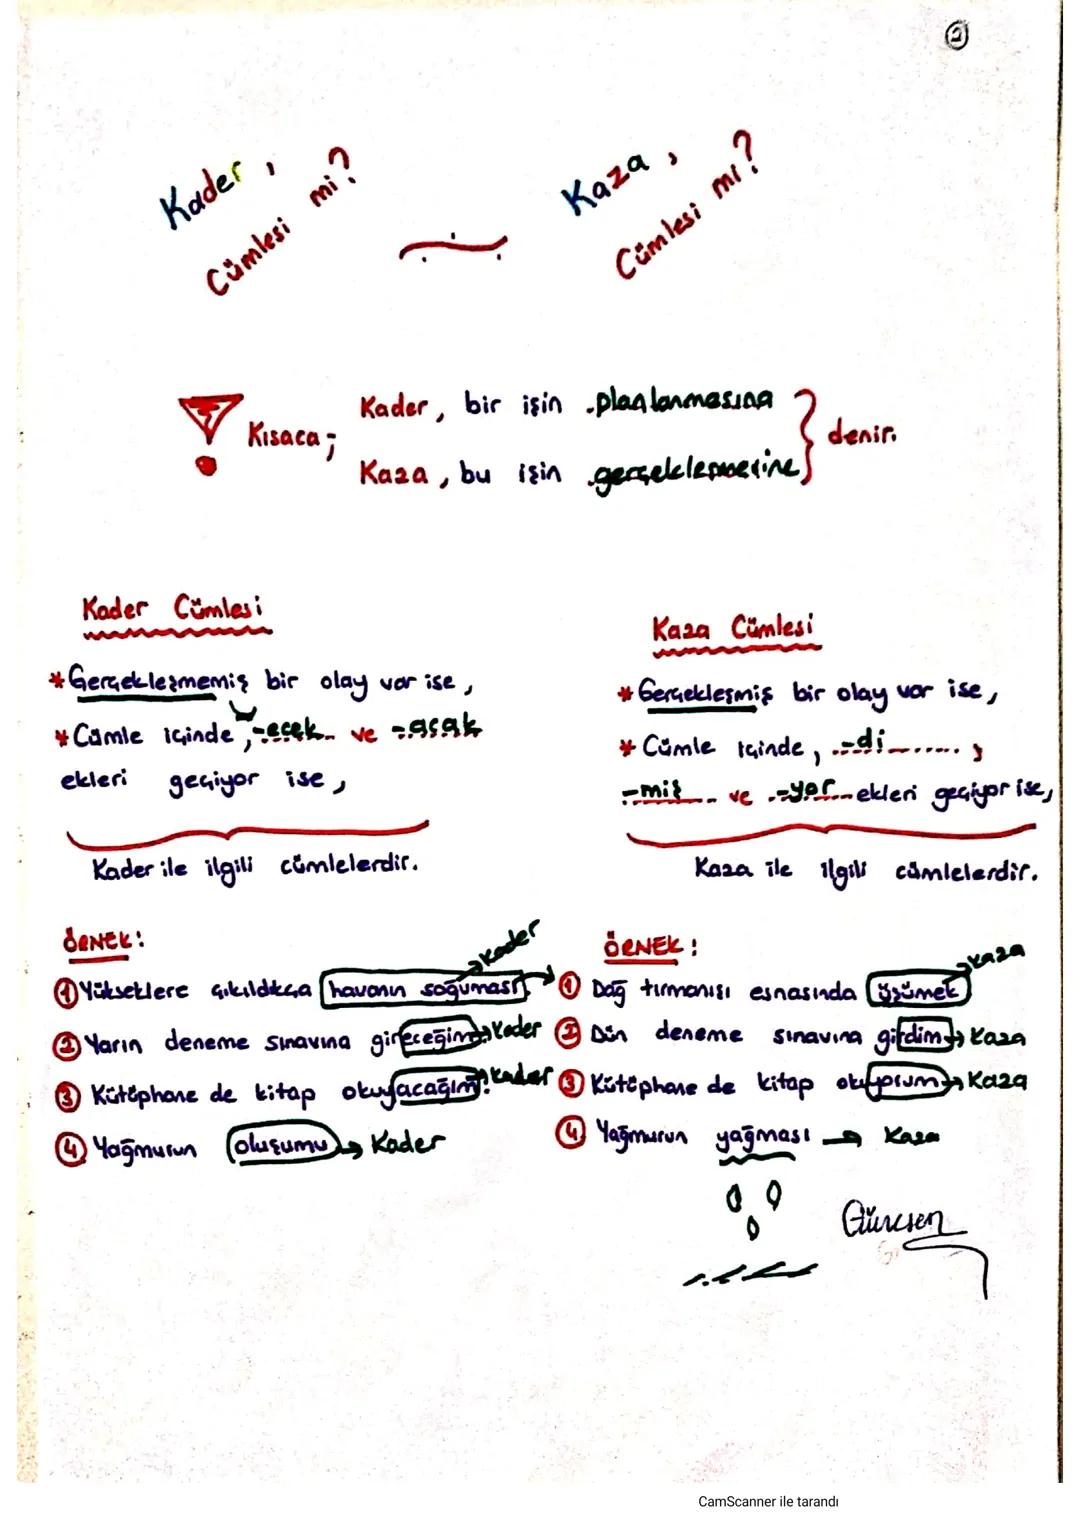 2
Kader,
Cümlesi mi?
Kaza,
Cümlesi mı?
Kısaca;
Kader, bir işin planlanmasına
Kaza, bu işin gerçekleşmesine
denir.
Kader Cümlesi
* Gerçekleşmemiş bir olay var ise,
* Cümle içinde, -ecek ve -acak
ekleri geçiyor ise,
Kader ile ilgili cümlelerdir.
ÖRNEK:
① Yükseklere çıkıldıkça havanın soğuması → Kader
② Yarın deneme sınavına gireceğim → Kader
③ Kütüphane de kitap okuyacağım. → Kader
④ Yağmurun oluşumu → Kader
Kaza Cümlesi
* Gerçekleşmiş bir olay var ise,
* Cümle içinde, -di,
-miş ve -yor ekleri geçiyor ise,
Kaza ile ilgili cümlelerdir.
ÖRNEK:
① Dağ tırmanışı esnasında üşümek → Kaza
② Dün deneme sınavına girdim → Kaza
③ Kütüphane de kitap okuyorum → Kaza
④ Yağmurun yağması → Kaza
CamScanner ile tarandı